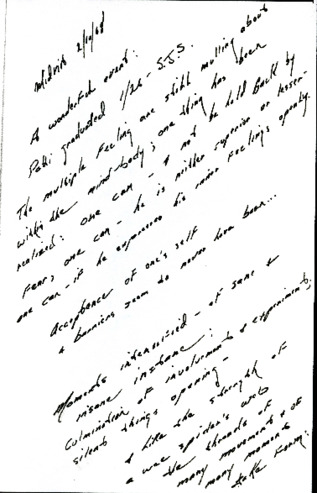 Midnite 2/10/68
A wonderful event:
Pati graduated 1/26 - S.J.S.
The multiple feelings are still mulling about
within the mind-body; one thing has been
realized: one can - & not be held back by
fear; one can - he is neither superior or lesser-
one can - if he expresses his inner feelings openly.
Acceptance of one's self
& barriers seem to never have been...
Moments intensified - of sane &
insane instance:
Culmination of involvements & experiments;
silent things opening -
& like the strength of
a wee spider's web
the threads of
many movements & of
many moments
take form: